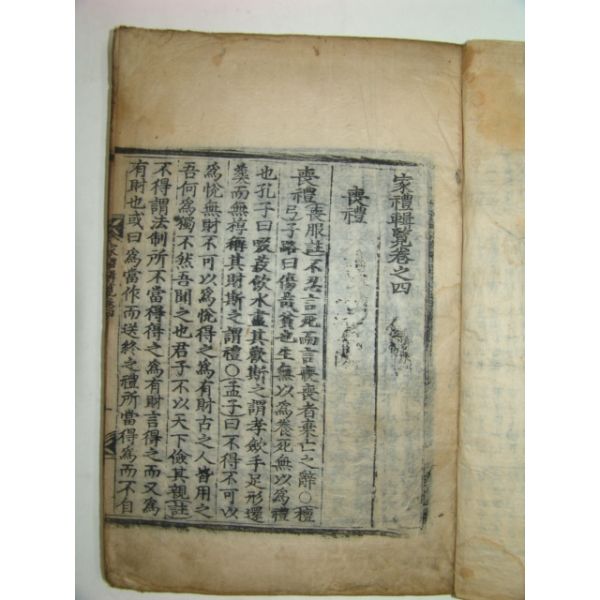 家禮輯覽卷之四
喪禮
喪禮 喪服註不忍言死而言喪喪者棄亡之辭○檀
弓子路曰傷哉貧也生無以爲養死無以爲禮
也孔子曰啜菽飮水盡其歡斯之謂孝斂手足形還
葬而無槨稱其財斯之謂禮○孟子曰不得不可以
爲悅無財不可以爲悅得之爲有財古之人皆用之
吾何爲獨不然吾聞之也君子不以天下儉其親註
不得謂法制所不當得得之爲有財言得之而又爲
有財也或曰爲當作而送終之禮所當得爲而不自
家禮輯覽卷四